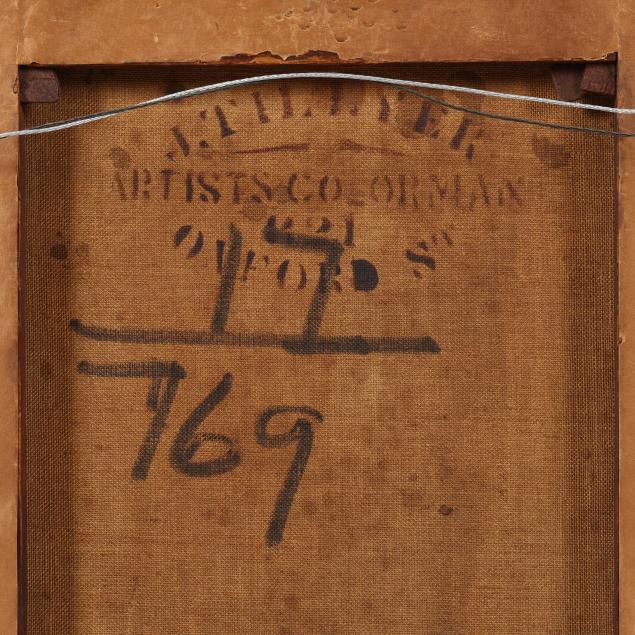 J. TILLYER
ARTISTS COLORMAN
OXFORD ST
17
769